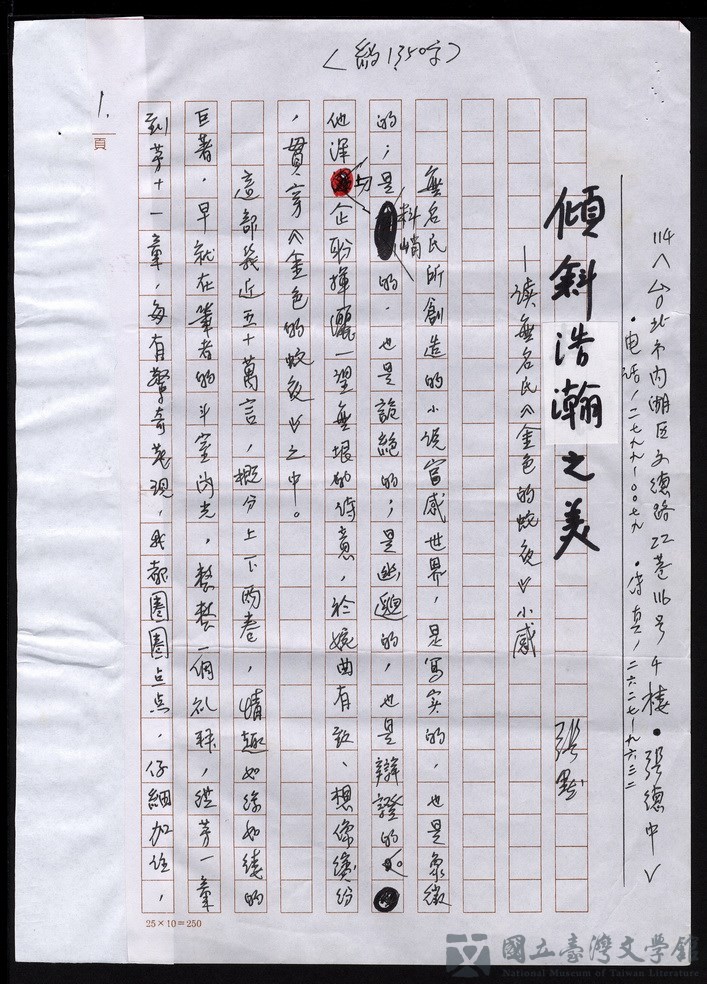 （約1350字）
114台北市內湖區文德路22巷116号4樓・張德中
・电話，二七九九一〇〇七九 ・传真，二六二七一九六三二
傾斜浩瀚之美
張默
—读無名氏《金色的蛇夜》小感
無名氏所創造的小說官感世界，是寫实的，也是象徵
的；是料峭的，也是詭絕的；是幽邈的，也是辯證的。
他渾企盼揮灑一望無垠的诗意，於婉曲有致、想像繽纷
，貫穿《金色的蛇夜》之中。
這部幾近五十萬言，概分上下兩卷，情趣如絲如縷的
巨著，早就在筆者的斗室內先，整整一個礼拜，從第一章
到第十一章，每有驚奇发現，我都圈圈点点，仔細加注，
1.
頁
25×10=250
國立臺灣文學館
National Museum of Taiwan Literature